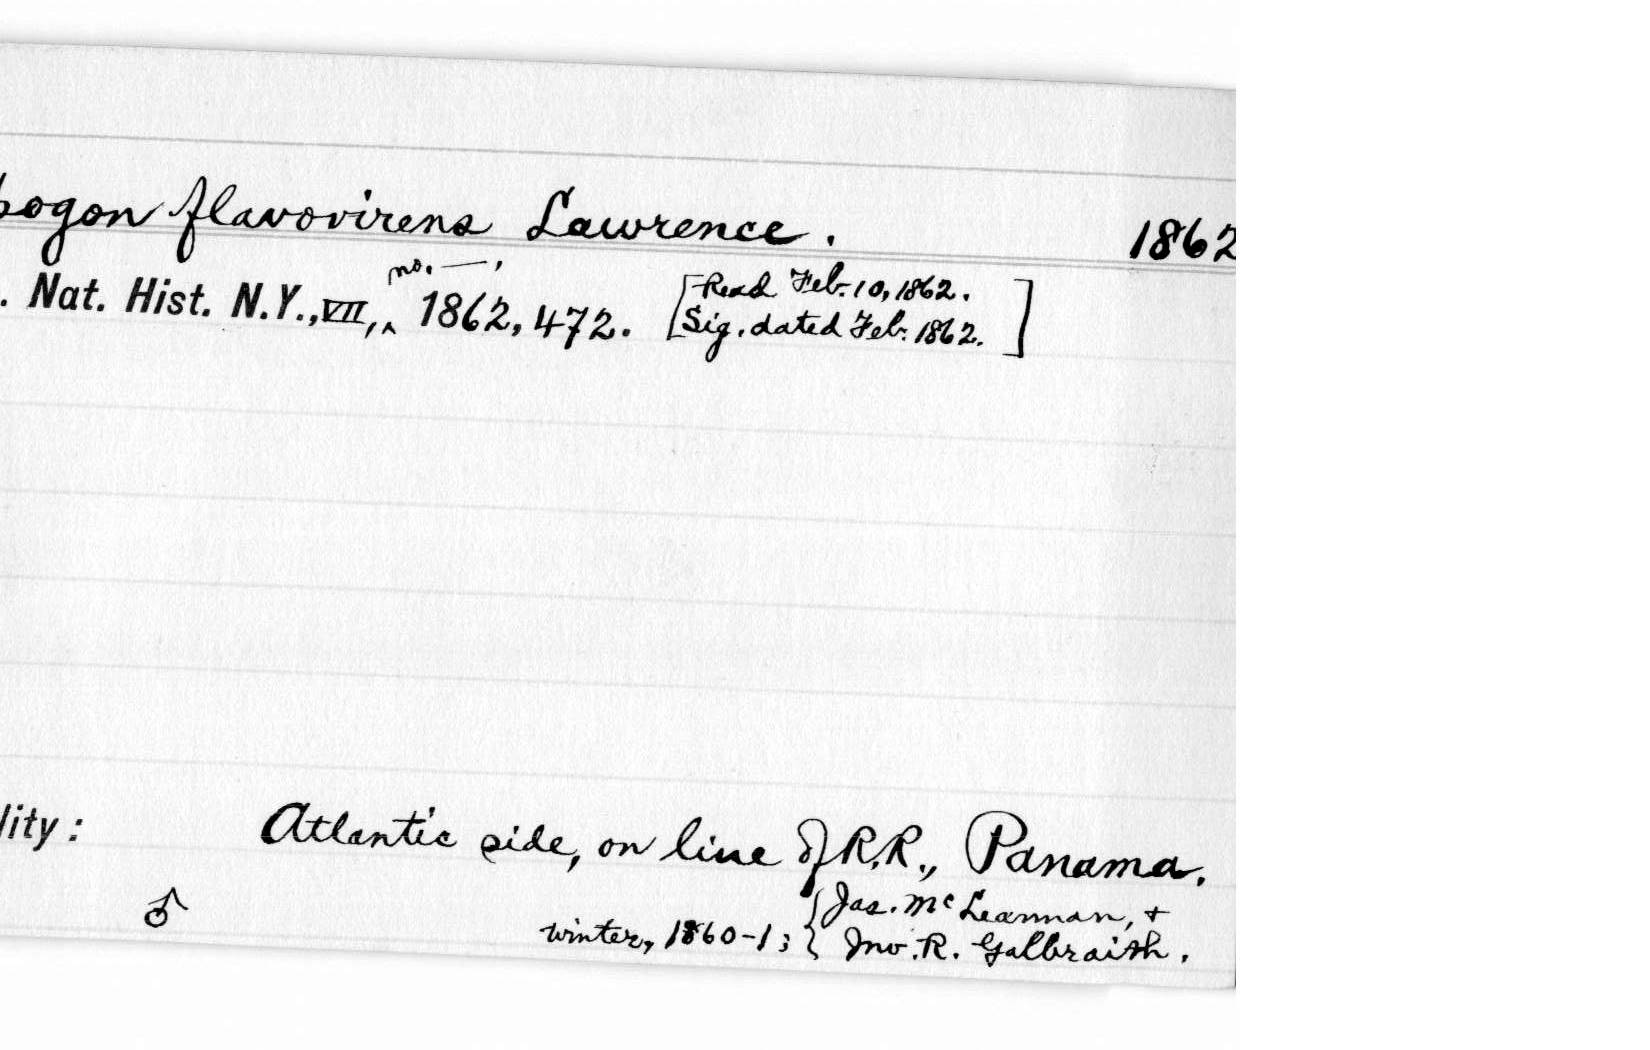 bogon flavovirens Lawrence. 1862
. Nat. Hist. N.Y., VII, ‸ no. —, 1862, 472. [Read Feb. 10, 1862.
Sig. dated Feb. 1862.]
lity: Atlantic side, on line of R.R., Panama.
♂ winter, 1860-1; { Jas. McLeannan, +
Jno. R. Galbraith.